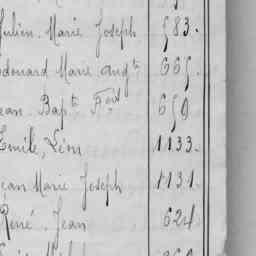 Julien Marie Joseph 583.
Edouard Marie Augte 665.
Jean Bapte Fois 659
Emile, Léon 1133.
Jean Marie Joseph 1131.
René, Jean 624